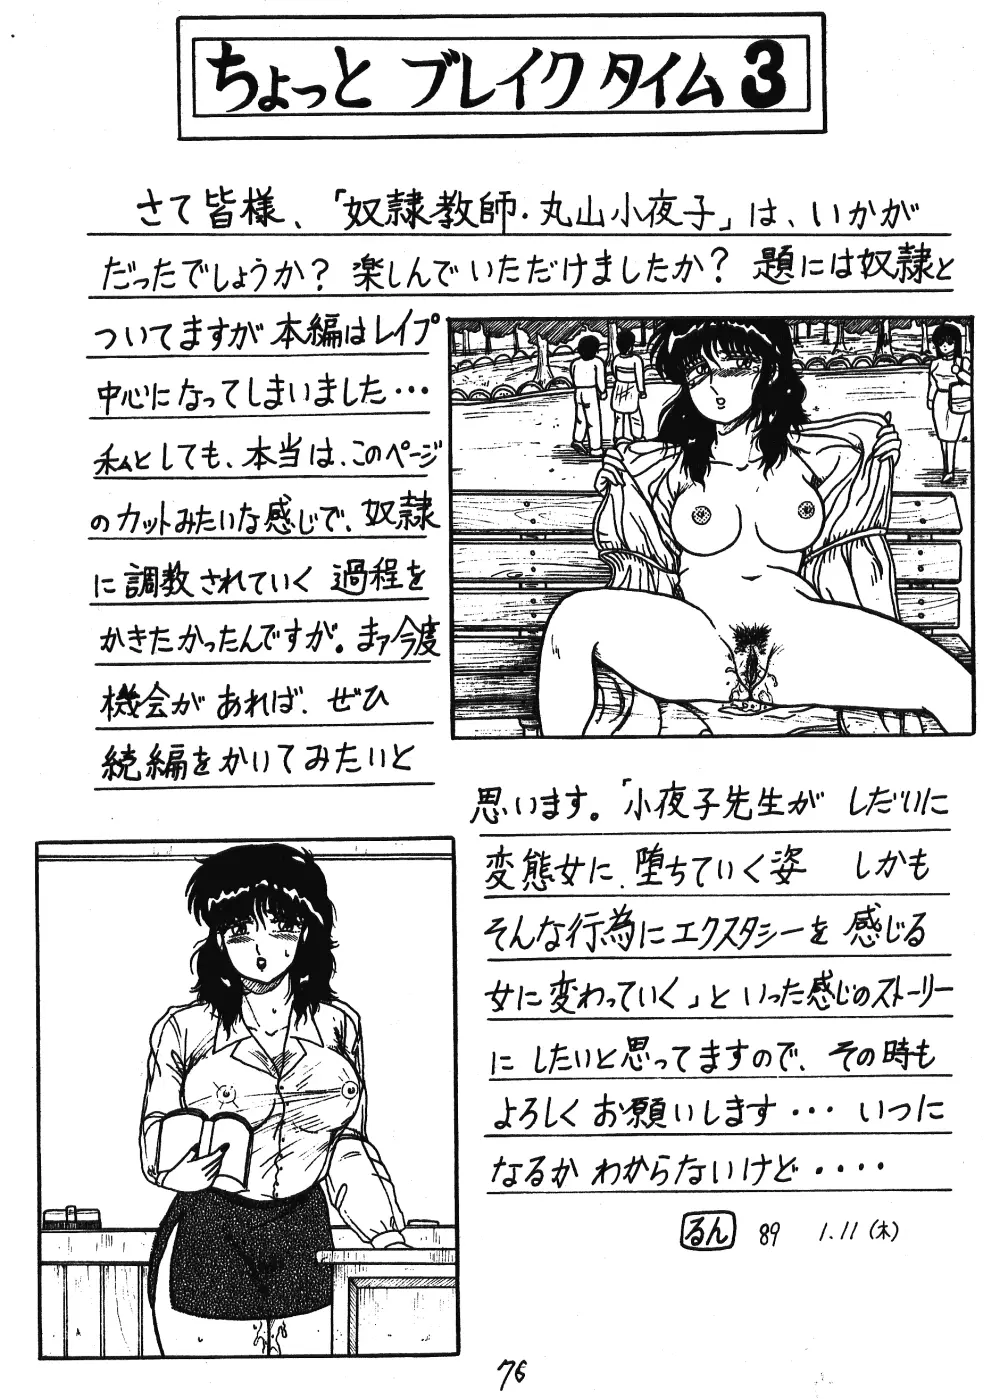 ちょっと ブレイク タイム 3
さて皆様、「奴隷教師・丸山小夜子」は、いかが
だったでしょうか？ 楽しんでいただけましたか？ 題には奴隷と
ついてますが本編はレイプ
中心になってしまいました・・・
私としても、本当は、このページ
のカットみたいな感じで、奴隷
に調教されていく過程を
かきたかったんですが。まァ今度
機会があれば、ぜひ
続編をかいてみたいと
思います。「小夜子先生が しだいに
変態女に、堕ちていく姿 しかも
そんな行為にエクスタシーを感じる
女に変わっていく」といった感じのストーリー
にしたいと思ってますので、その時も
よろしくお願いします・・・いつに
なるかわからないけど・・・・
るん 89 1.11(木)
76